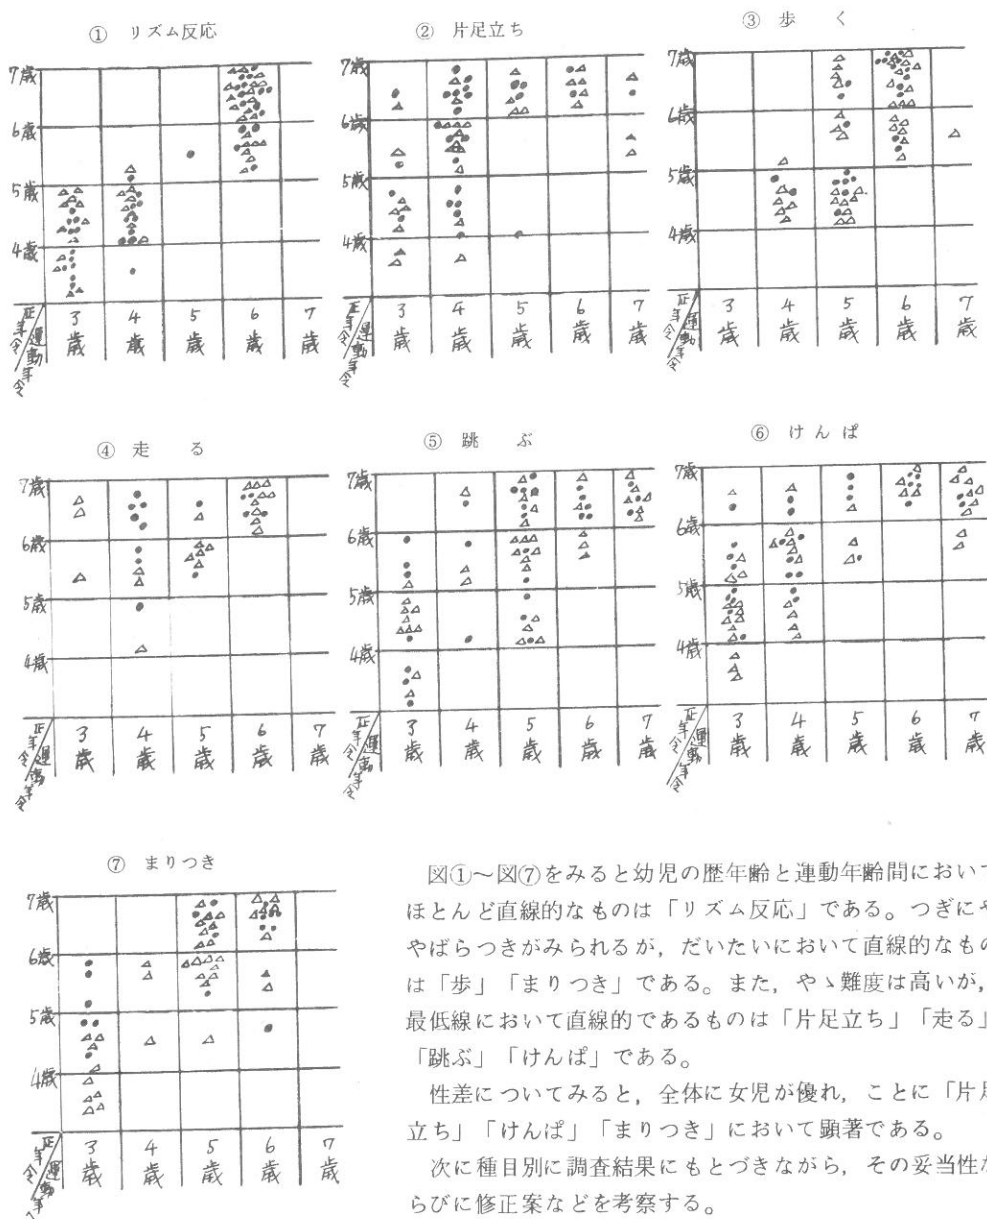 ① リズム反応
② 片足立ち
③ 歩 く
7歳
6歳
5歳
4歳
正年令
運動年令
3歳
4歳
5歳
6歳
7歳
7歳
6歳
5歳
4歳
正年令
運動年令
3歳
4歳
5歳
6歳
7歳
7歳
6歳
5歳
4歳
正年令
運動年令
3歳
4歳
5歳
6歳
7歳
④ 走 る
⑤ 跳 ぶ
⑥ けんぱ
7歳
6歳
5歳
4歳
正年令
運動年令
3歳
4歳
5歳
6歳
7歳
7歳
6歳
5歳
4歳
正年令
運動年令
3歳
4歳
5歳
6歳
7歳
7歳
6歳
5歳
4歳
正年令
運動年令
3歳
4歳
5歳
6歳
7歳
⑦ まりつき
7歳
6歳
5歳
4歳
正年令
運動年
3歳
4歳
5歳
6歳
7歳
図①〜図⑦をみると幼児の歴年齢と運動年齢間において
ほとんど直線的なものは「リズム反応」である。つぎにや
やばらつきがみられるが，だいたいにおいて直線的なもの
は「歩」「まりつき」である。また，やゝ難度は高いが，
最低線において直線的であるものは「片足立ち」「走る」
「跳ぶ」「けんぱ」である。
性差についてみると，全体に女児が優れ，ことに「片足
立ち」「けんぱ」「まりつき」において顕著である。
次に種目別に調査結果にもとづきながら，その妥当性な
らびに修正案などを考察する。